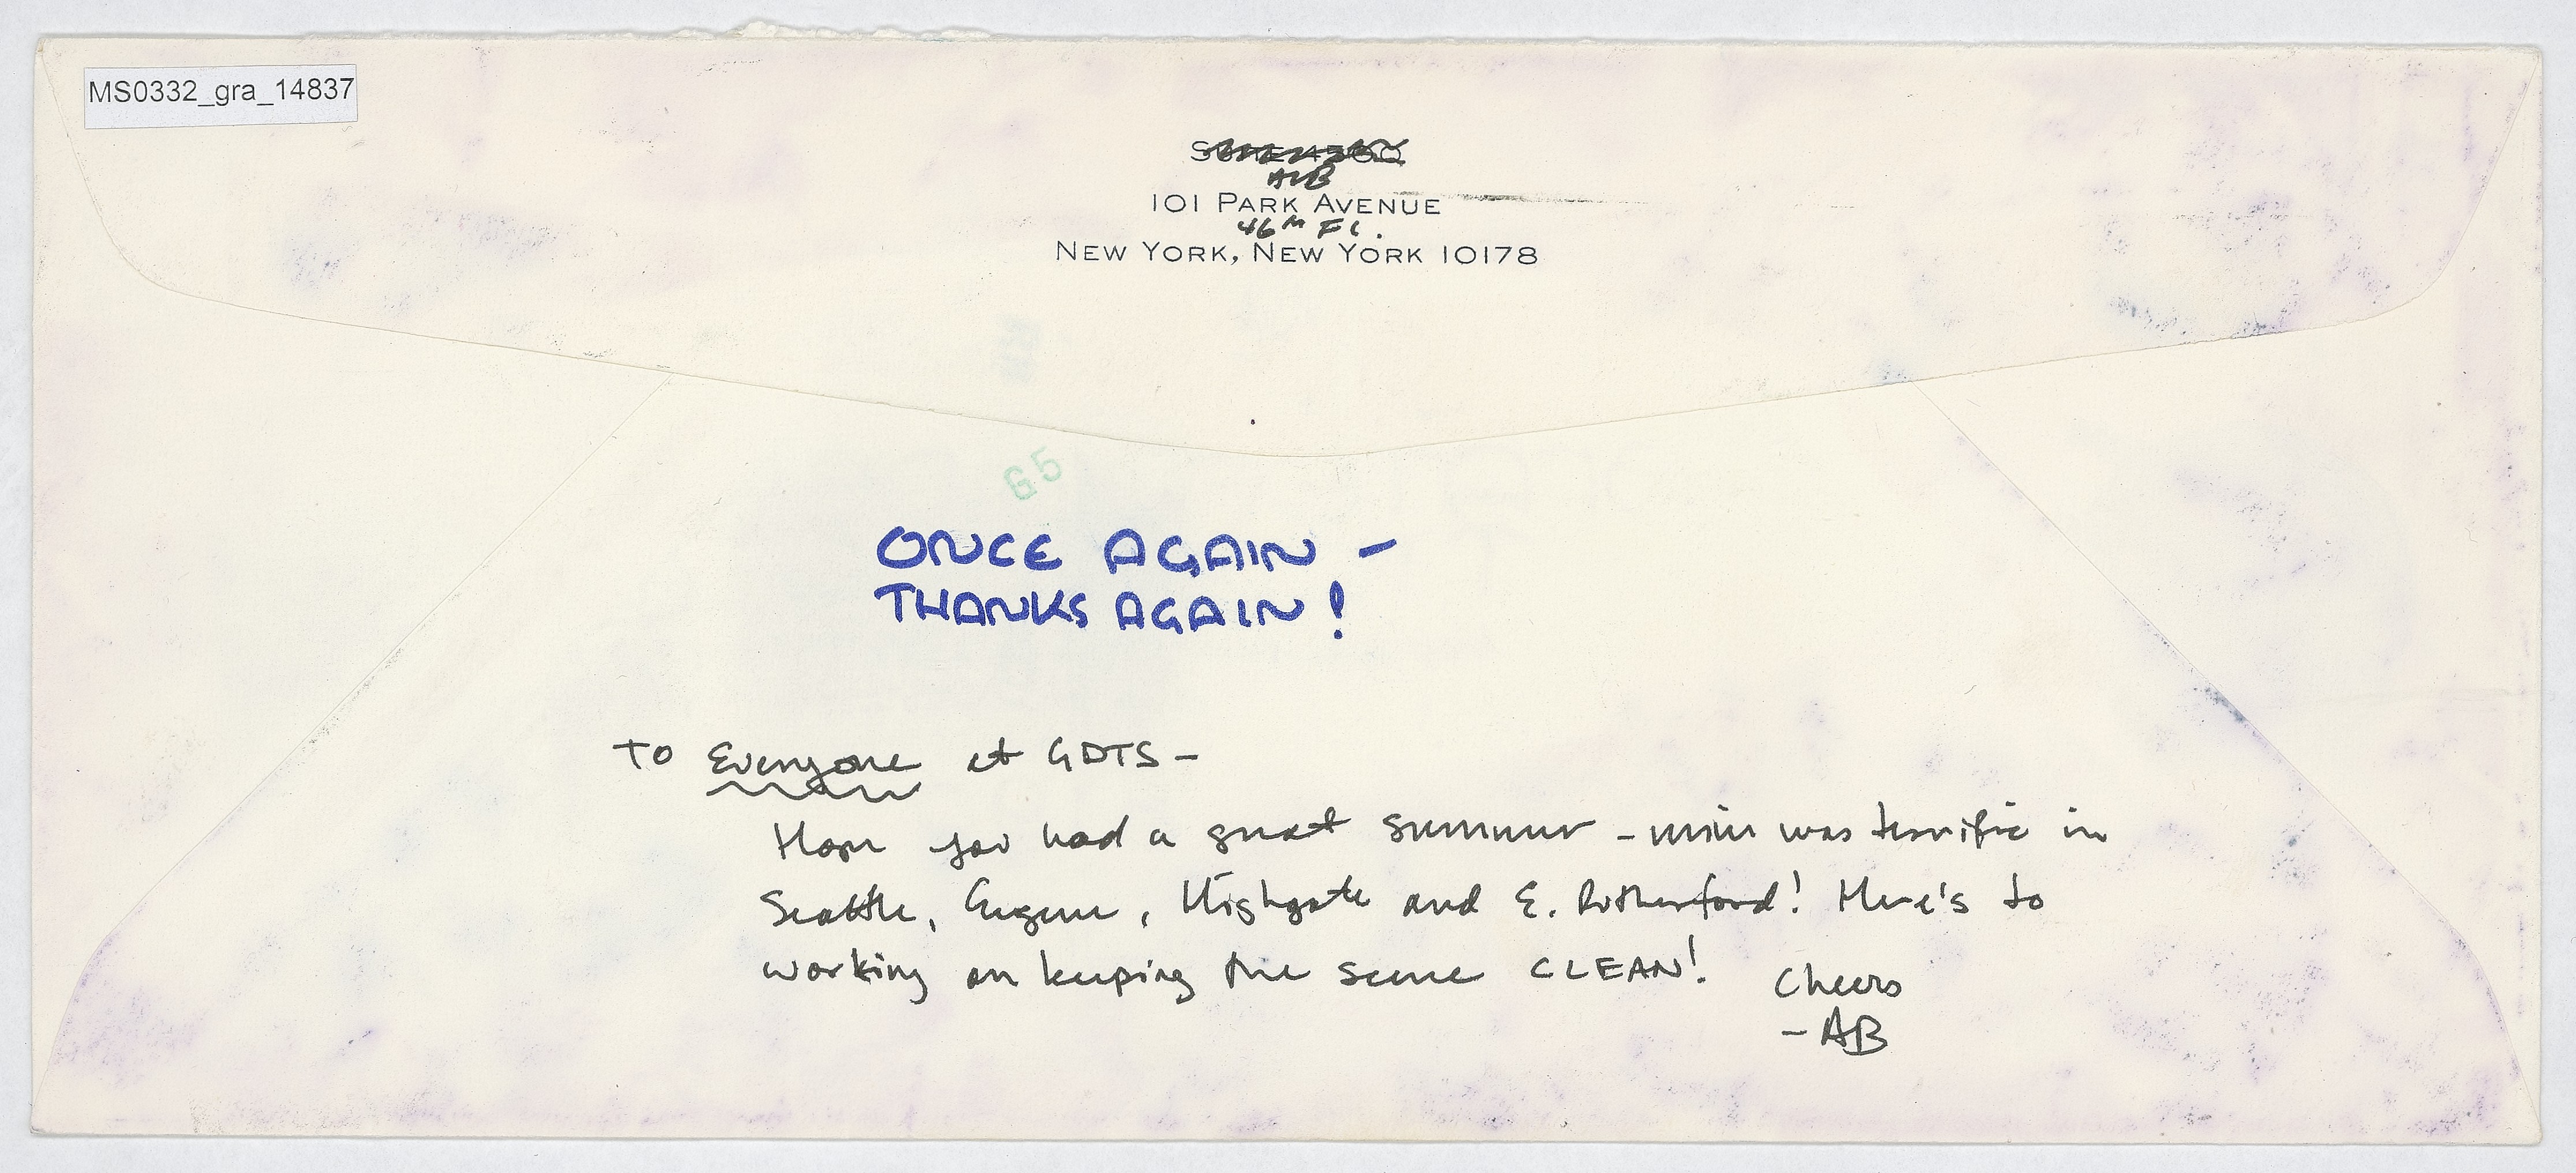 MS0332_gra_14837
101 PARK AVENUE
46th Fl.
NEW YORK, NEW YORK 10178
G5
ONCE AGAIN –
THANKS AGAIN!
TO Everyone at GDTS –
Hope you had a great summer – mine was terrific in
Seattle, Eugene, Highgate and E. Rutherford! Here's to
working on keeping the scene CLEAN!
Cheers
– AB